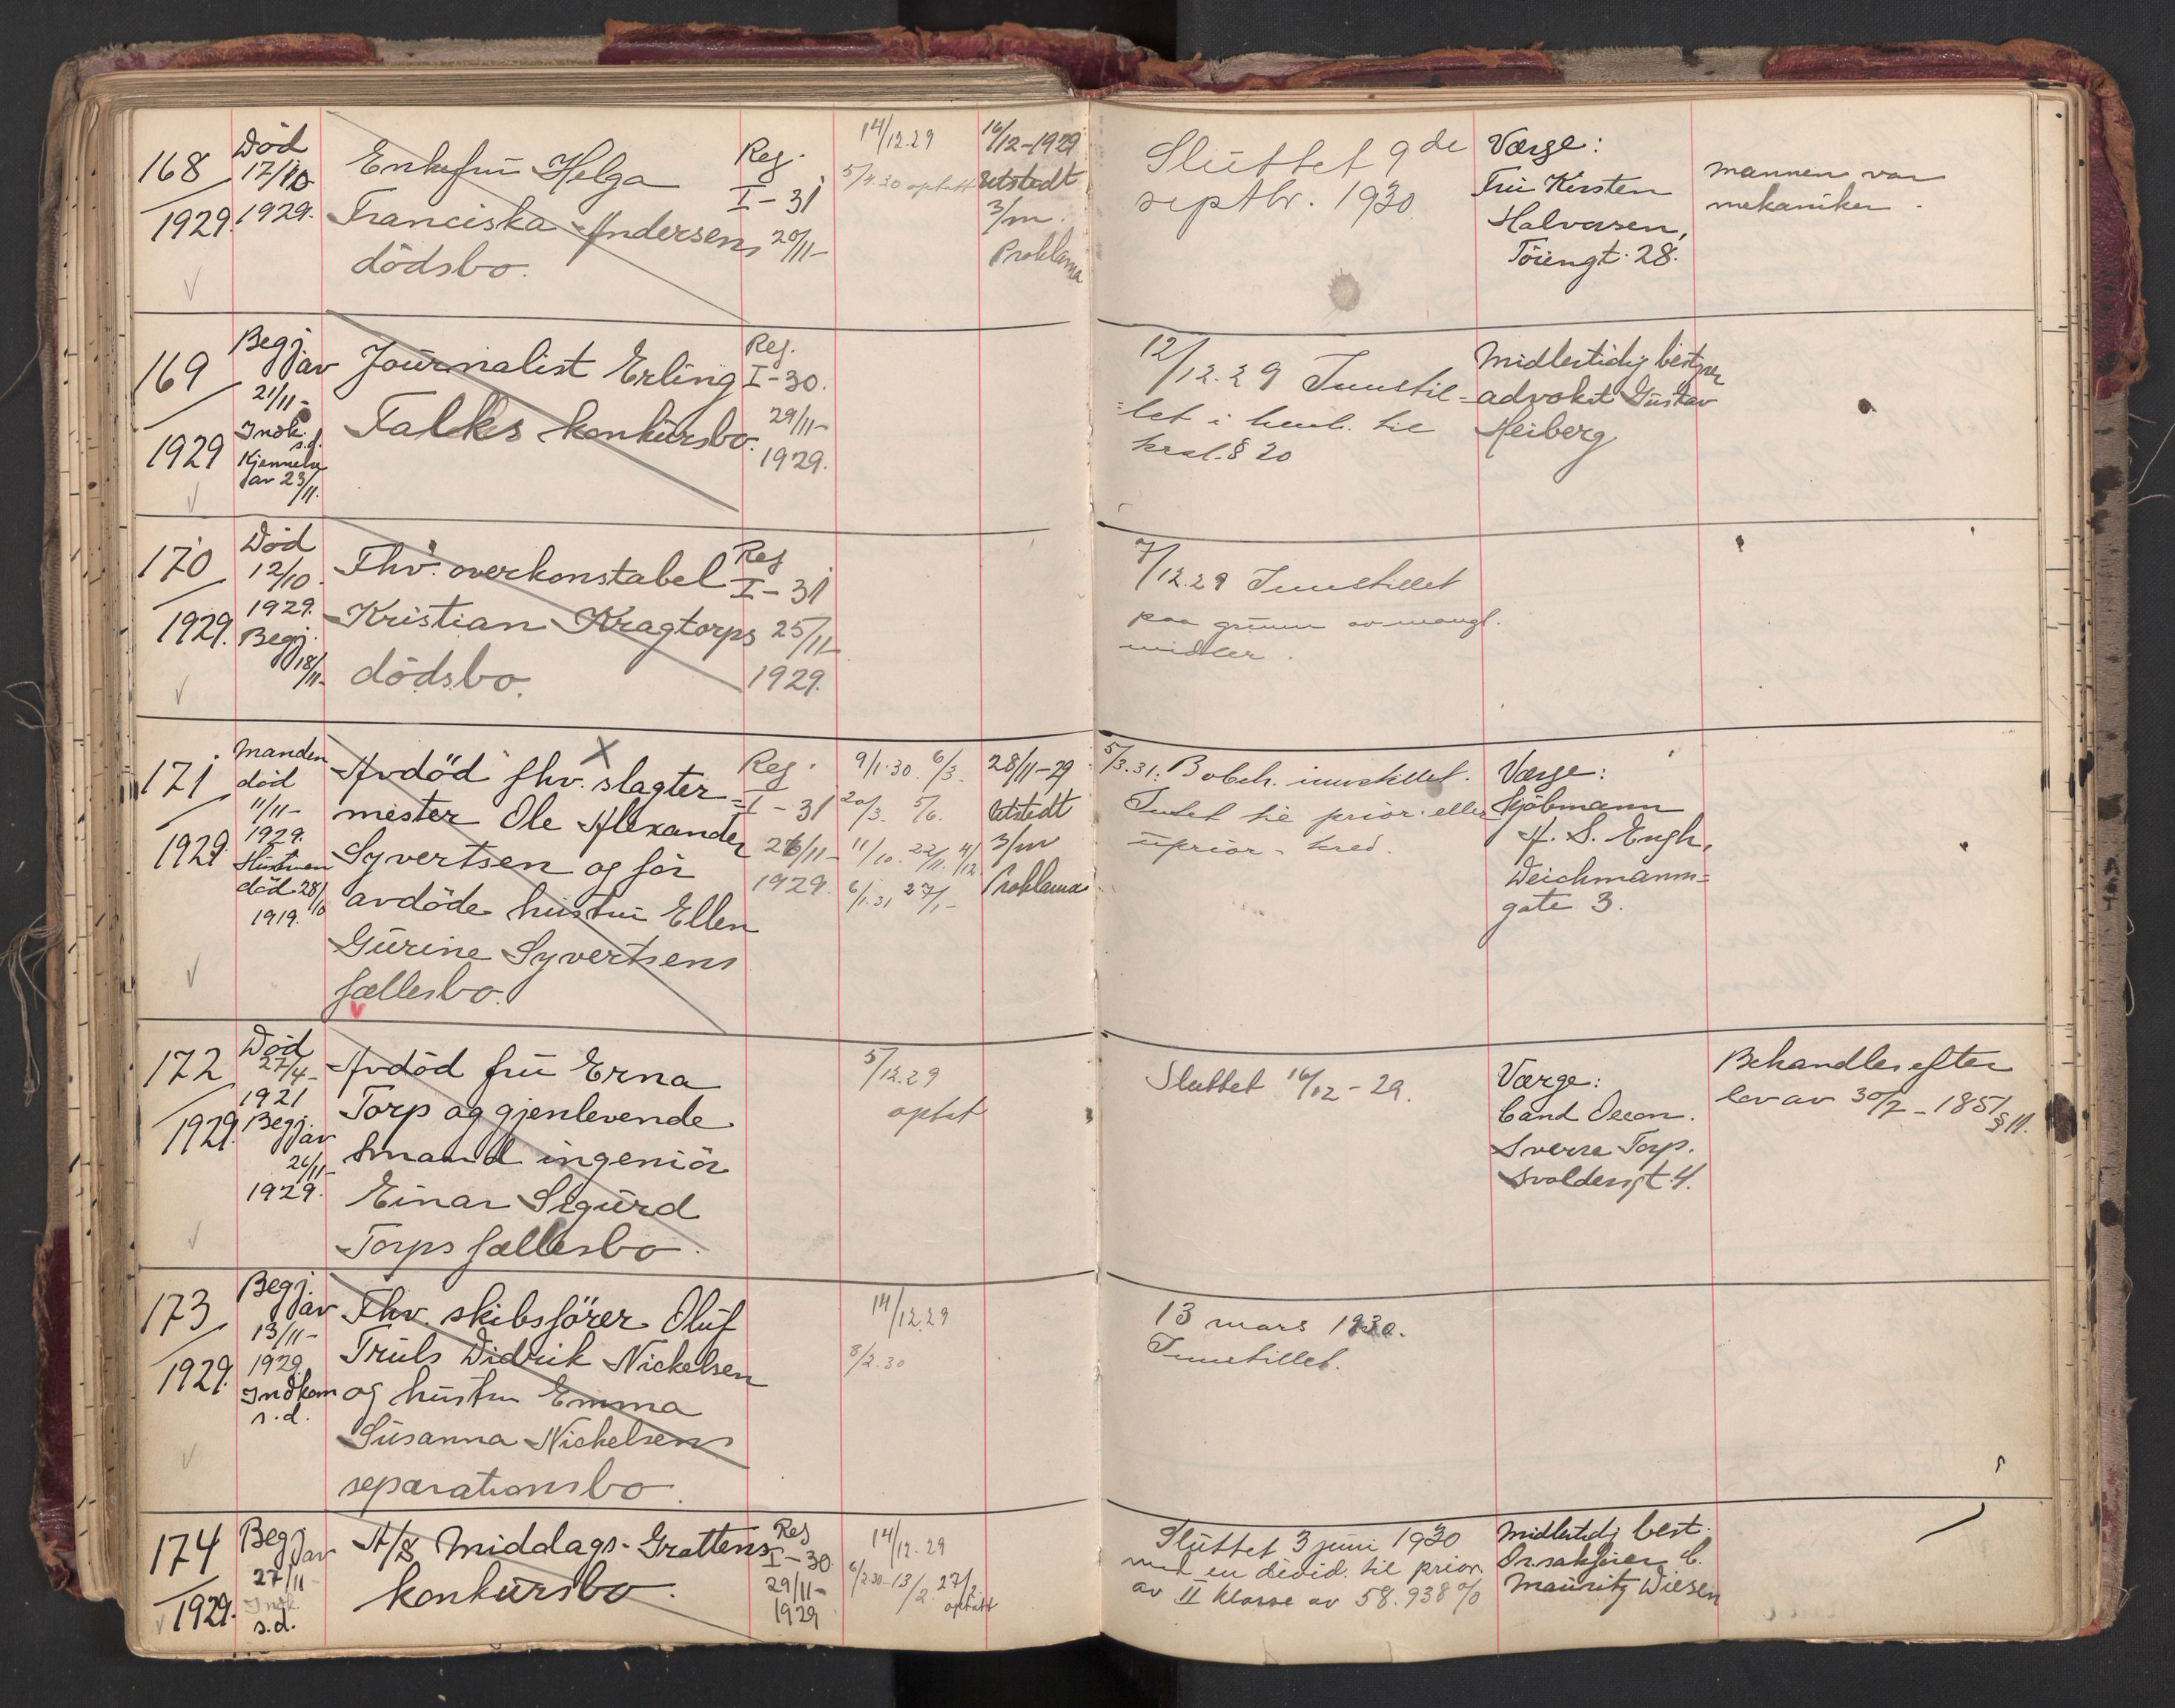 168
1929.
Död
17/10
1929.
Enkefru Helga
Franciska Andersens
dödsbo.
Reg.
I-31
20/11-
14/12.29
5/4.30 optatt
16/12-1929
Utstedt
3/m.
Proklama
Sluttet 9de
septbr. 1930
Værge:
Fru Kirsten
Halvorsen,
Töiengt. 28.
Mannen var
mekaniker.
169
1929
Begj.
av
21/11-
Indk.
s.d.
Kjennelse
av 23/11.
Journalist Erling
Falks konkursbo.
Reg.
I-30.
29/11-
1929.
12/12.29 Innstil-
let i henh. til
§ 20
Midlertidig bestyrer
advokat Gustav
Heiberg
170
1929.
Död
12/10
1929.
Begj.
18/11-
Fhv. overkonstabel
Kristian Kragtorps
dödsbo.
Reg
I-31
25/11
1929.
7/12.29 Innstillet
paa grunn av mangl.
midler.
171
1929.
Manden
död
11/11-
1929.
Hustruen
död 28/10
1919.
Avdöd fhv. slagter=
mester Ole Alexander
Syvertsen og för
avdöde hustru Ellen
Gurine Syvertsens
fællesbo.
Reg.
I-31
26/11-
1929.
9/1.30. 6/3.
20/3. 5/6.
11/10. 22/11. 4/12
6/1.31 27/1-
28/11-29
Utstedt
3/m
Proklama
5/3.31. Bobeh. innstillet.
Intet til prior. eller
uprior. kred.
Værge:
Kjöbmann
A. S. Engh,
Weichmanns=
gate 3.
172
1929.
Död
27/4-
1921
Begj.
av
26/11-
1929.
Avdöd fru Erna
Torp og gjenlevende
mand ingeniör
Einar Sigurd
Torps fællesbo.
5/12.29
optat
Sluttet 16/12-29.
Værge:
Cand Oecon.
Sverre Torp.
Svoldersgt. 4.
Behandles efter
lov av 30/7-1851
§ 11.
173
1929.
Begj.
av
13/11-
1929
Indkom
s.d.
Fhv. skibsförer Oluf
Truls Didrik Nickelsen
og hustru Emma
Susanna Nickelsens
separationsbo.
14/12.29
8/2.30
13 mars 1930.
Innstillet.
174
1929.
Begj.
av
27/11-
Indk
s.d.
A/S Middags-Grottens
konkursbo.
Reg
I-30
29/11-
1929
14/12-29
6/2.30-13/2. 27/2.
optatt
Sluttet 3 juni 1930
med en divid. til prior.
av II klasse av 58.938%
Midlertidj best.
Or.sakförer C.
Mauritz Diesen